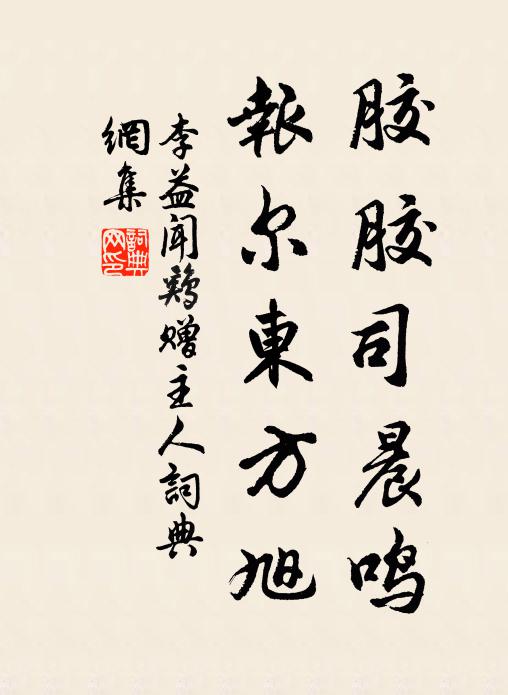 胶胶司晨鸣
報尔東方旭
李益闻鷄赠主人詞典
網集
詞典
网印